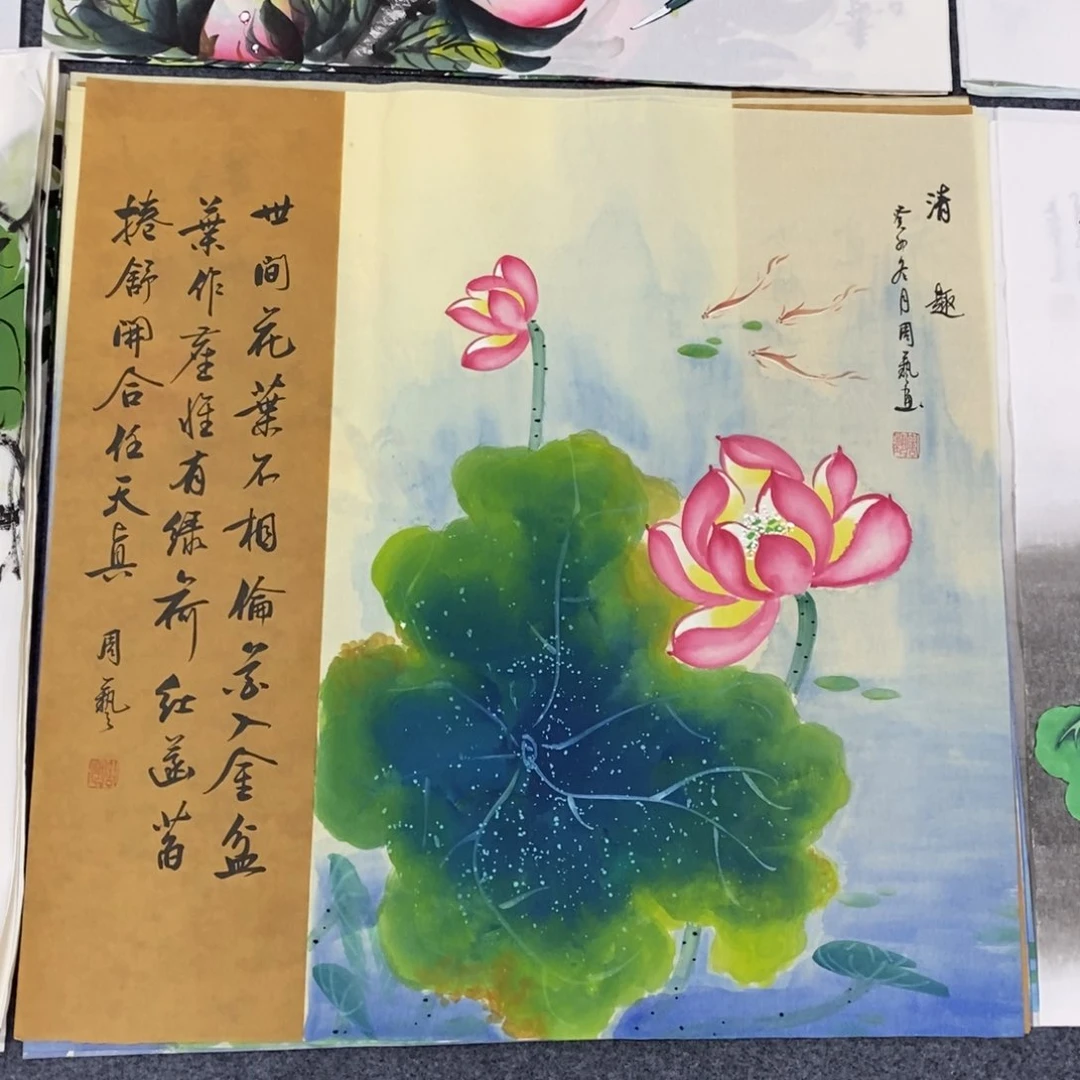 清趣
癸卯冬月周藝畫
世間花葉不相倫花入金盆
葉作塵惟有綠荷紅菡萏
捲舒開合任天真
周藝